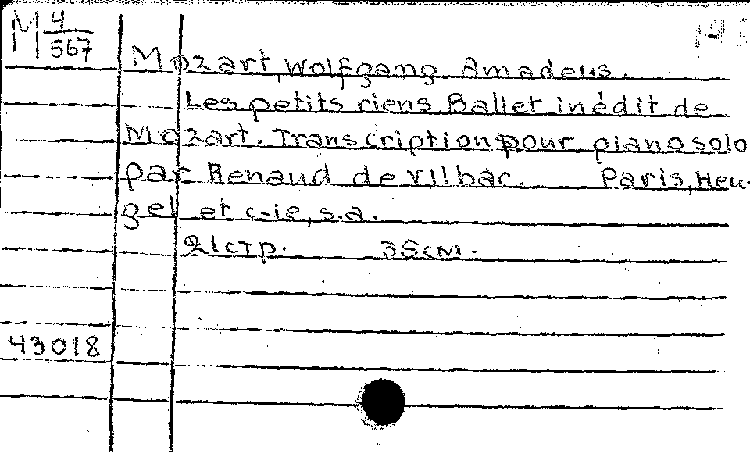 M 4/567
Mozart, Wolfgang Amadeus.
Les petits riens Ballet inédit de
Mozart. Transcription pour piano solo
par Renaud de Vilbac. Paris, Heu-
gel et C-ie, s.a.
21 стр. 35 см.
43018